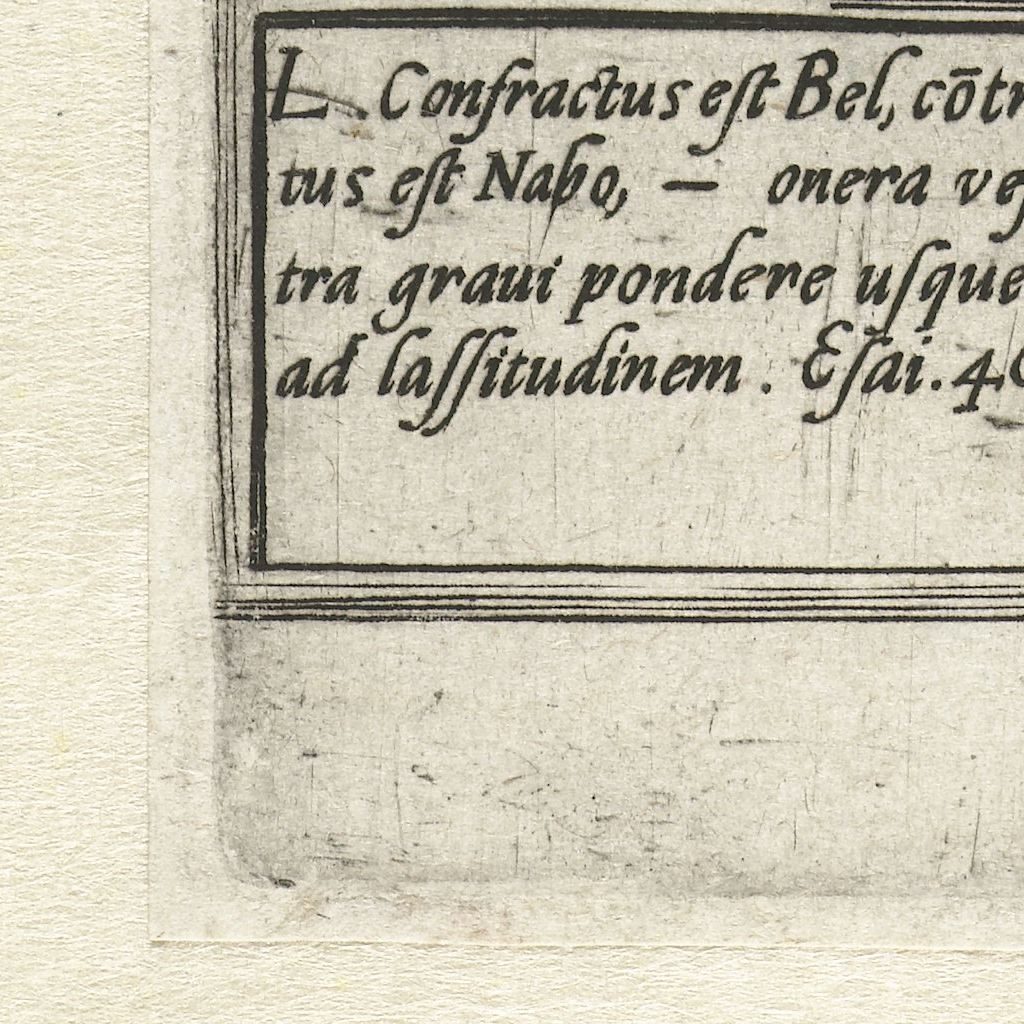 L. Confractus eſt Bel, cōtr
tus eſt Nabo, — onera veſ
tra graui pondere uſque
ad laſſitudinem. Eſai. 46